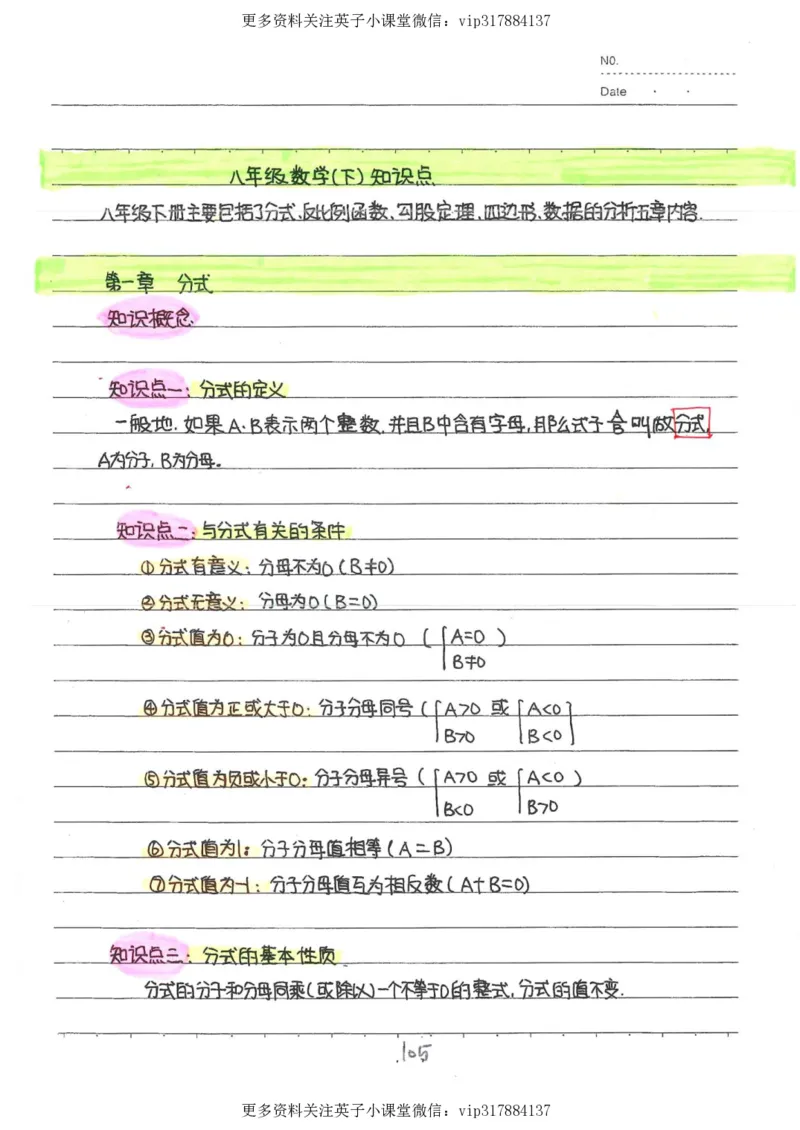 更多资料关注英子小课堂微信：vip317884137
NO.
Date · ·
八年级数学(下)知识点
八年级下册主要包括了分式、反比例函数、勾股定理、四边形、数据的分析五章内容.
第一章 分式
知识概念
知识点一：分式的定义
一般地.如果A·B表示两个整数.并且B中含有字母,那么式子 叫做分式.
A为分子,B为分母。
知识点二：与分式有关的条件
①分式有意义：分母不为0(B≠0)
②分式无意义：分母为0(B=0)
③分式值为0：分子为0且分母不为0 ({A=0 )
B≠0
④分式值为正或大于0：分子分母同号({A>0 或{A<0]
B>0 B<0
⑤分式值为负或小于0：分子分母异号({A>0 或{A<0 )
B<0 B>0
⑥分式值为1：分子分母值相等(A=B)
⑦分式值为-1：分子分母值互为相反数(A+B=0)
知识点三：分式的基本性质
分式的分子和分母同乘(或除以)一个不等于0的整式,分式的值不变.
.105
更多资料关注英子小课堂微信：vip317884137